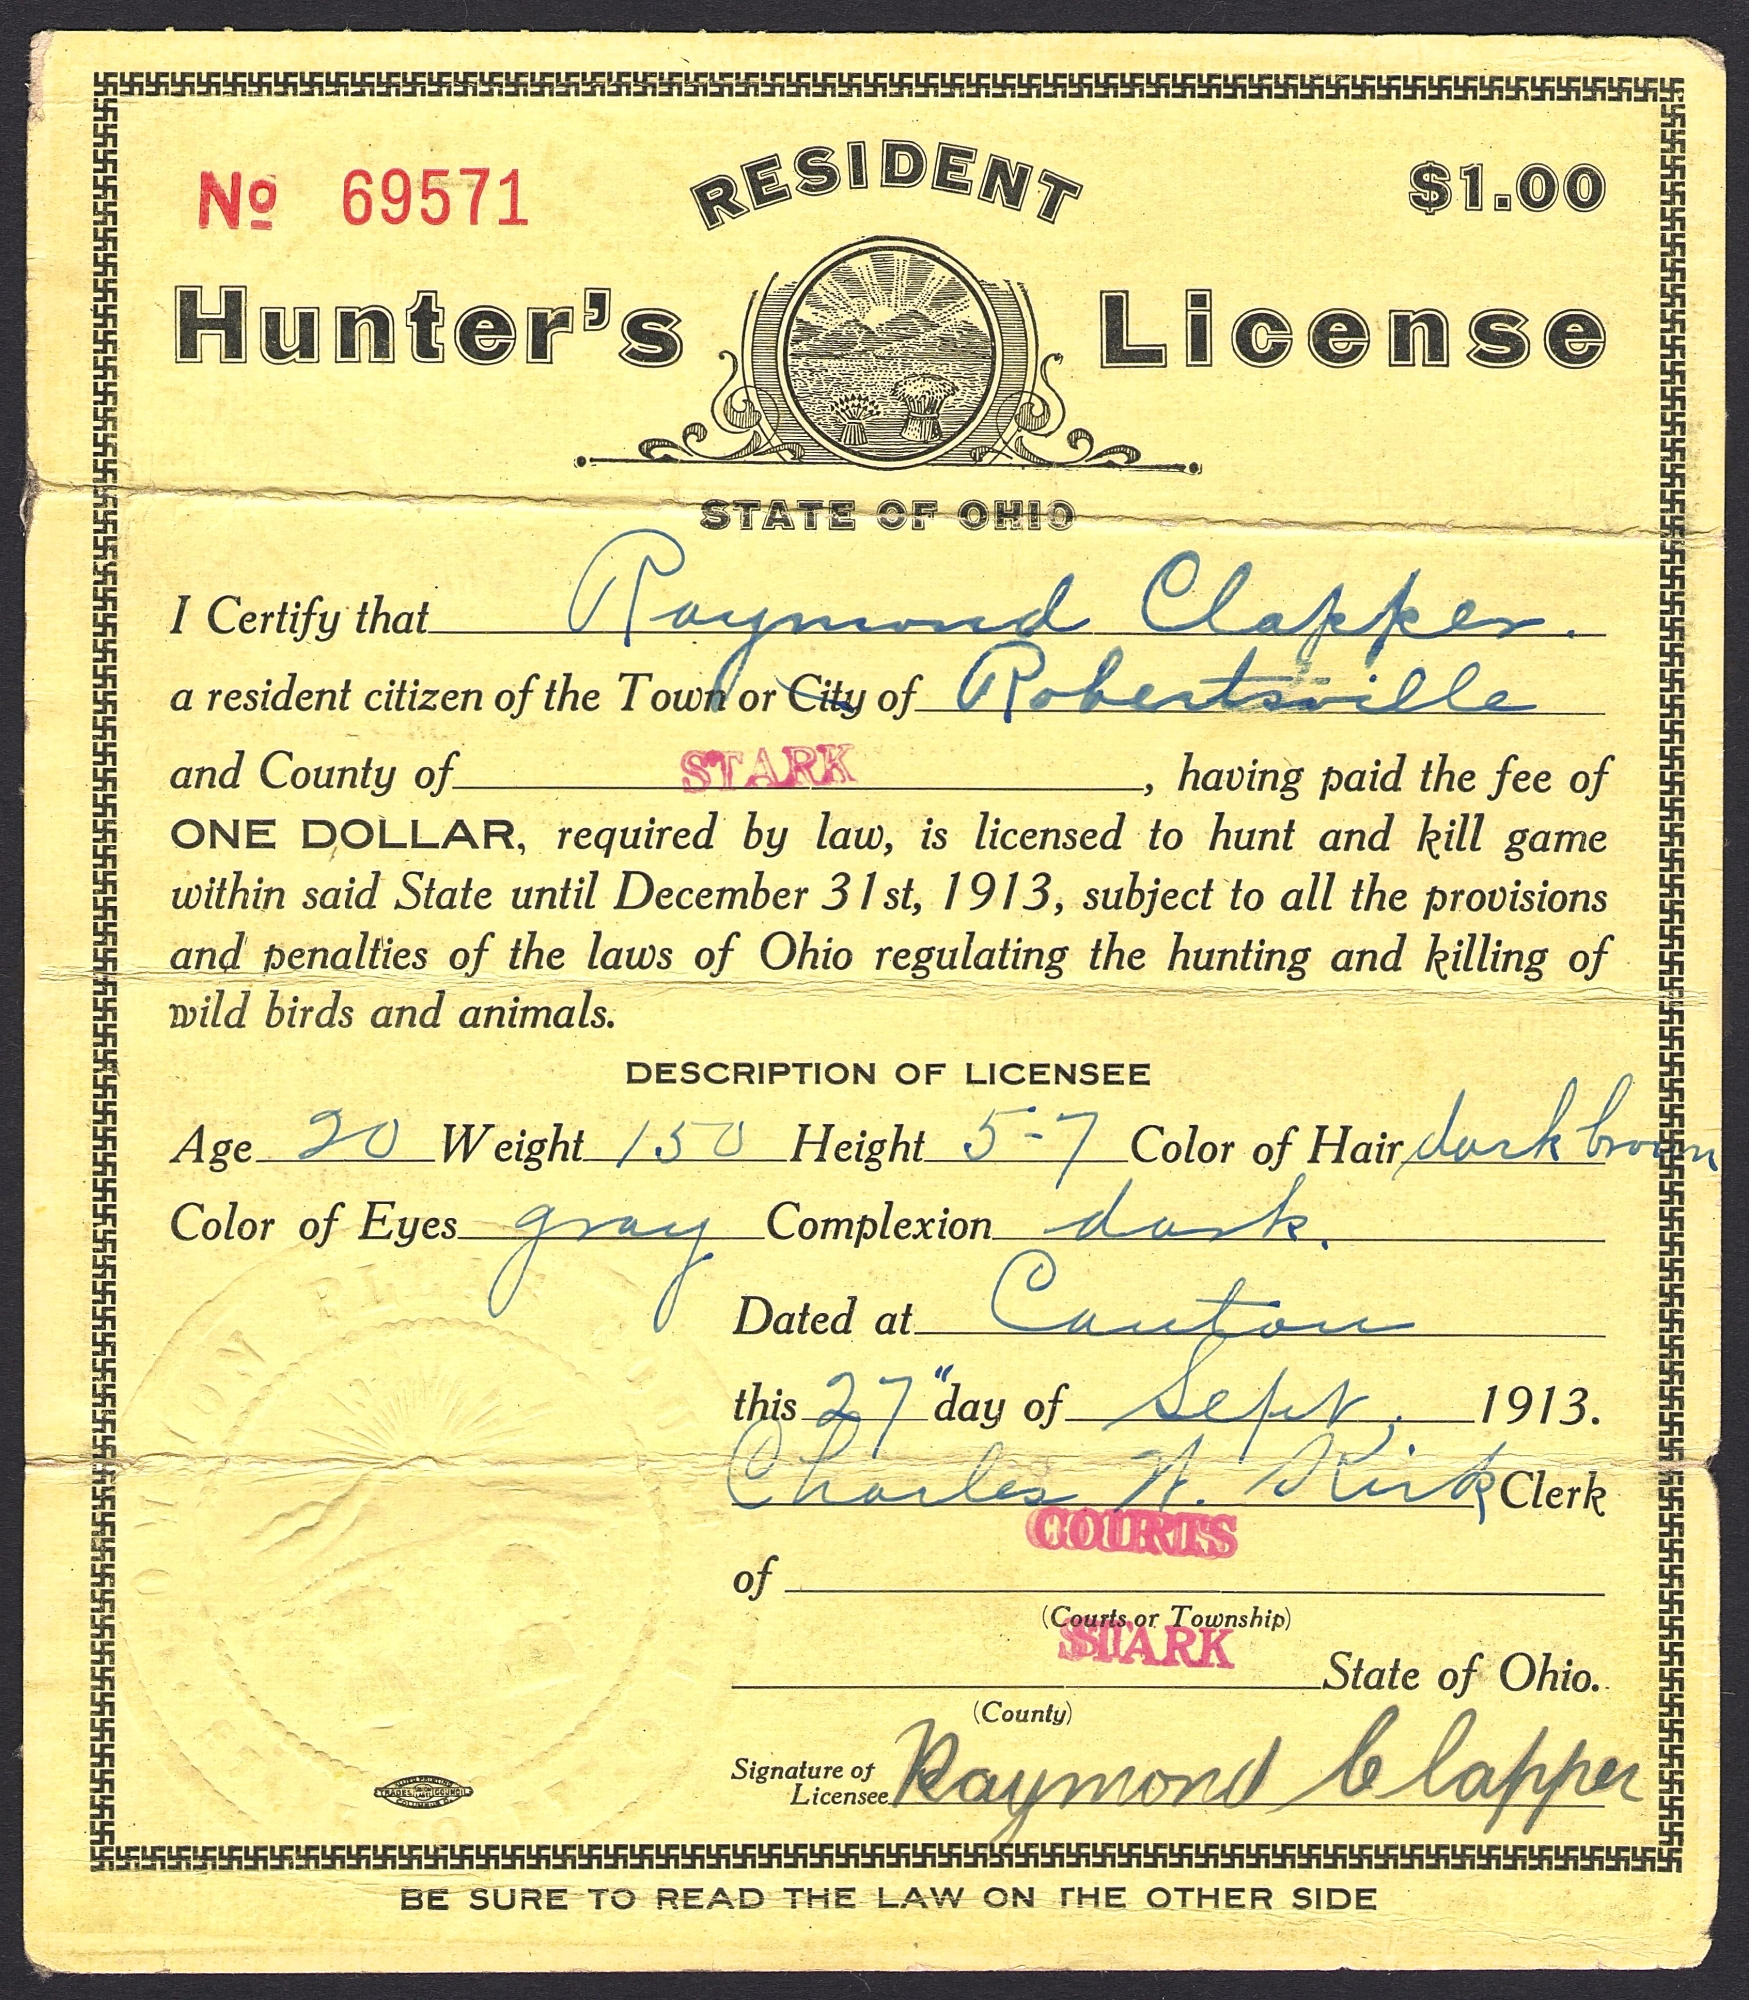 RESIDENT
No 69571
$1.00
Hunter's License
STATE OF OHIO
I Certify that Raymond Clapper.
a resident citizen of the Town or City of Robertsville
and County of STARK, having paid the fee of
ONE DOLLAR, required by law, is licensed to hunt and kill game
within said State until December 31st, 1913, subject to all the provisions
and penalties of the laws of Ohio regulating the hunting and killing of
wild birds and animals.
DESCRIPTION OF LICENSEE
Age 20 Weight 150 Height 5-7 Color of Hair dark brown
Color of Eyes gray Complexion dark.
Dated at Canton
this 27" day of Sept, 1913.
Charles N. Kirk Clerk
COURTS
of
(Courts or Township)
STARK State of Ohio.
(County)
Signature of
Licensee Raymond Clapper
TRADES COUNCIL
BE SURE TO READ THE LAW ON THE OTHER SIDE